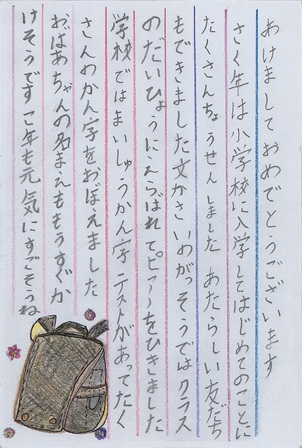 あけましておめでとうございます
さく年は小学校に入学してはじめてのことに
たくさんちょうせんしました あたらしい友だち
もできました文かさいのがっそうではクラス
のだいひょうにえらばれてピアノをひきました
学校ではまいしゅうかん字テストがあってたく
さんのかん字をおぼえました
おばあちゃんの名まえももうすぐか
けそうです こ年も元気にすごそうね